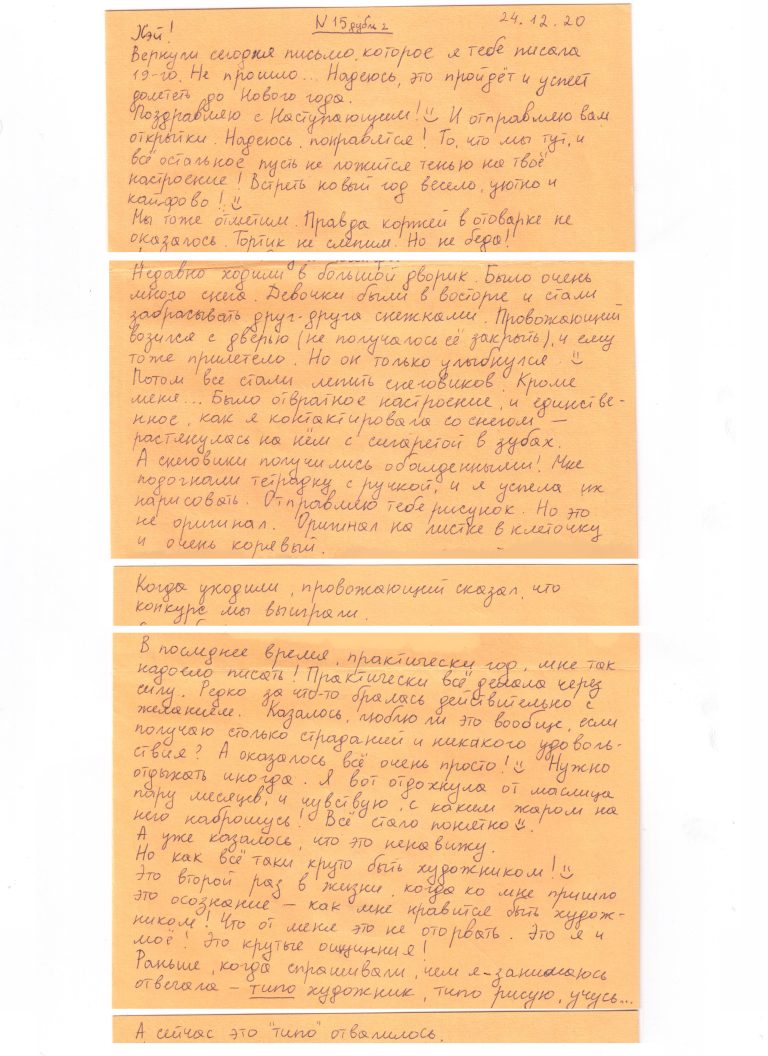 N 15 дубль 2
24.12.20
Кэй!
Вернули сегодня письмо, которое я тебе писала
19-го. Не прошло... Надеюсь, это пройдёт и успеет
долететь до Нового года.
Поздравляю с Наступающим! И отправляю вам
открытки. Надеюсь, понравятся! То, что мы тут, и
всё остальное пусть не ложится тенью на твоё
настроение! Встреть новый год весело, уютно и
кайфово!
Мы тоже отметим. Правда коржей в отоварке не
оказалось. Тортик не слепим. Но не беда!
Недавно ходили в большой дворик. Было очень
много снега. Девочки были в восторге и стали
забрасывать друг-друга снежками. Провожающий
возился с дверью (не получалось её закрыть), и ему
тоже прилетело. Но он только улыбнулся.
Потом все стали лепить снеговиков. Кроме
меня... Было отвратное настроение, и единстве-
нное, как я контактировала со снегом –
растянулась на нём с сигаретой в зубах.
А снеговики получились обалденными! Мне
подогнали тетрадку с ручкой, и я успела их
нарисовать. Отправляю тебе рисунок. Но это
не оригинал. Оригинал на листке в клеточку
и очень корявый.
Когда уходили, провожающий сказал, что
конкурс мы выиграли.
В последнее время, практически год, мне так
надоело писать! Практически всё делала через
силу. Редко за что-то бралась действительно с
желанием. Казалось, люблю ли это вообще, если
получаю столько страданий и никакого удоволь-
ствия? А оказалось всё очень просто! Нужно
отдыхать иногда. Я вот отдохнула от маслица
пару месяцев, и чувствую, с каким жаром на
него наброшусь! Всё стало понятно.
А уже казалось, что это ненавижу.
Но как всё таки круто быть художником!
Это второй раз в жизни, когда ко мне пришло
это осознание – как мне нравится быть худож-
ником! Что от меня это не оторвать. Это я и
моё! Это крутые ощущения!
Раньше, когда спрашивали, чем я занимаюсь
отвечала – типо художник, типо рисую, учусь...
А сейчас это "типо" отвалилось.